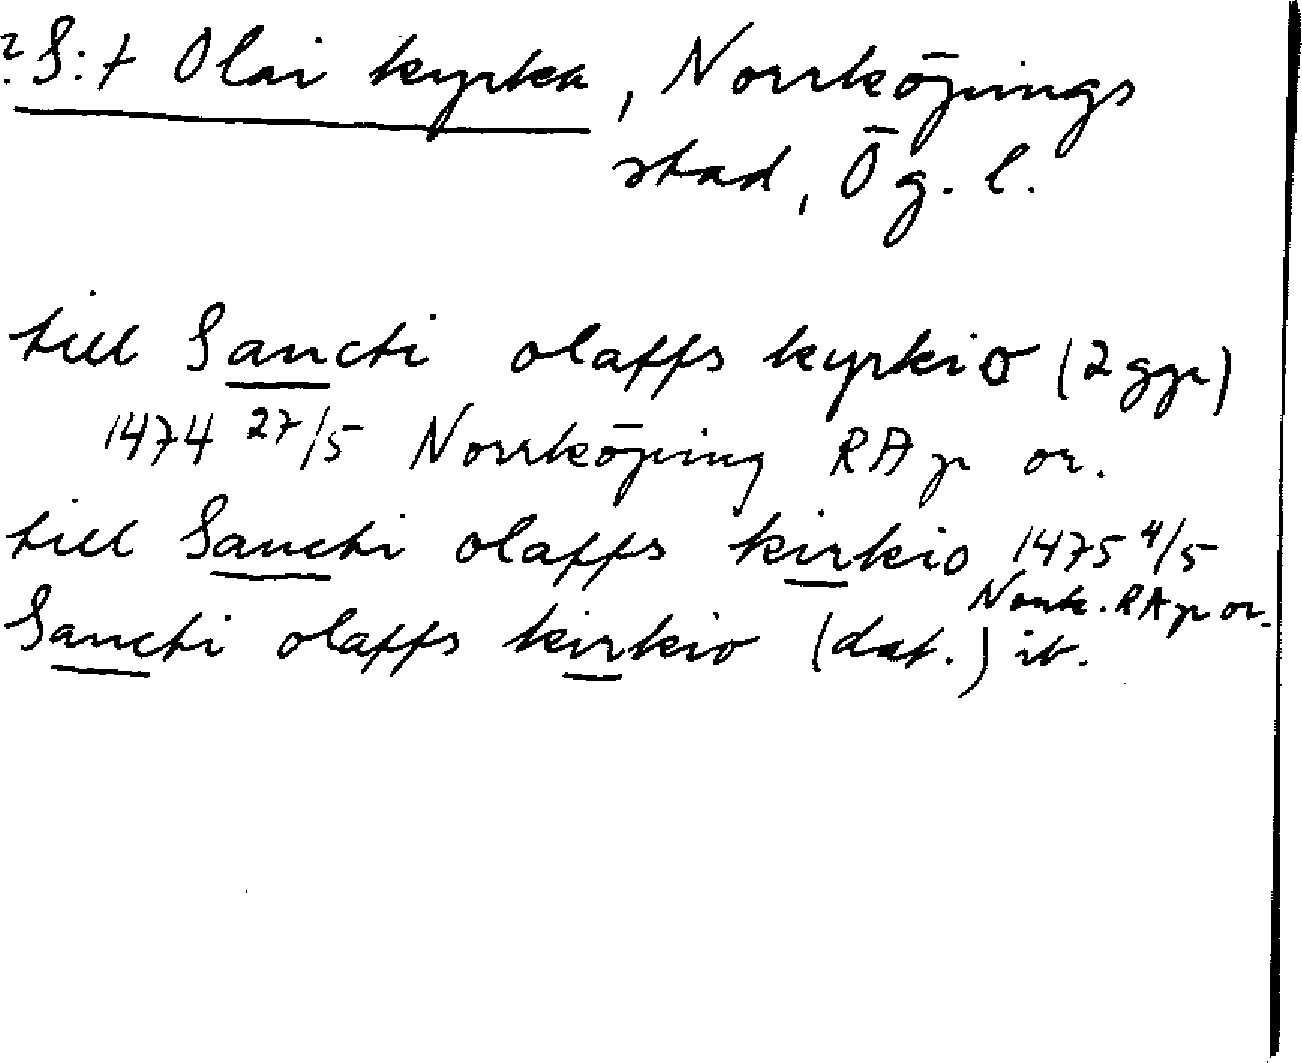 ? S:t Olai kyrka, Norrköpings
stad, Ög. l.
till Sancti olaffs kyrkio (2 ggr)
1474 27/5 Norrköping RAp or.
till Sancti olaffs kirkio 1475 4/5
Norrk. RAp or.
Sancti olaffs kirkio (dat.) ib.